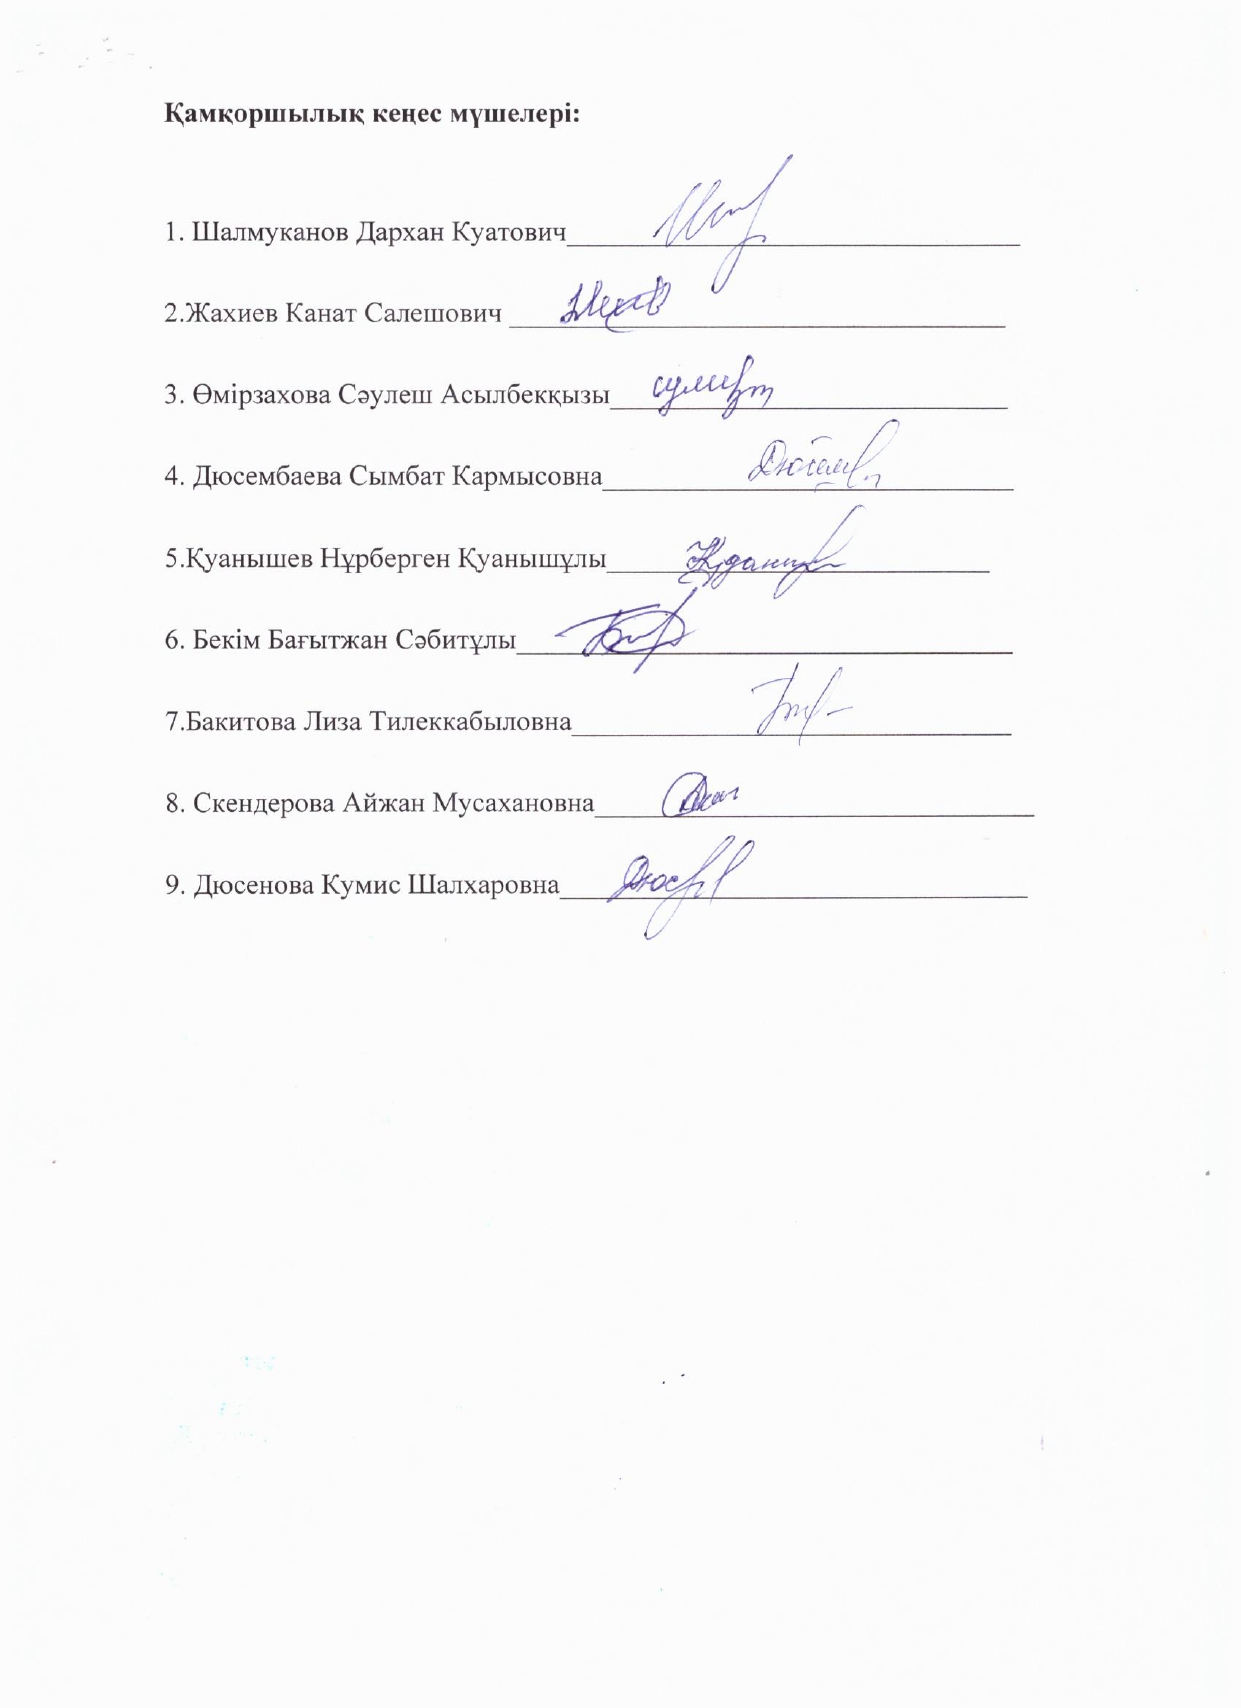 Қамқоршылық кеңес мүшелері:
1. Шалмуканов Дархан Куатович
2.Жахиев Канат Салешович
3. Өмірзахова Сәулеш Асылбекқызы
4. Дюсембаева Сымбат Кармысовна
5.Қуанышев Нұрберген Қуанышұлы
6. Бекім Бағытжан Сәбитұлы
7.Бакитова Лиза Тилеккабыловна
8. Скендерова Айжан Мусахановна
9. Дюсенова Кумис Шалхаровна